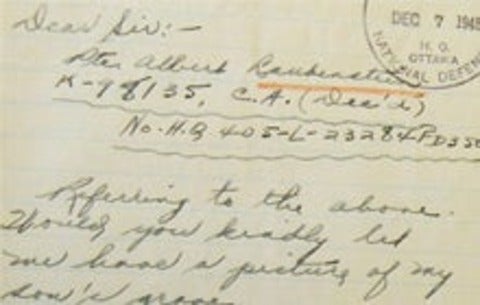 Dear Sir:-
DEC 7 1945
H.Q.
OTTAWA
NATIONAL DEFENCE
Pte. Albert
K-98135, C.A. (Dec'd)
No. H.Q 405-L-23284
Referring to the above.
Would you kindly let
me have a picture of my
son's grave